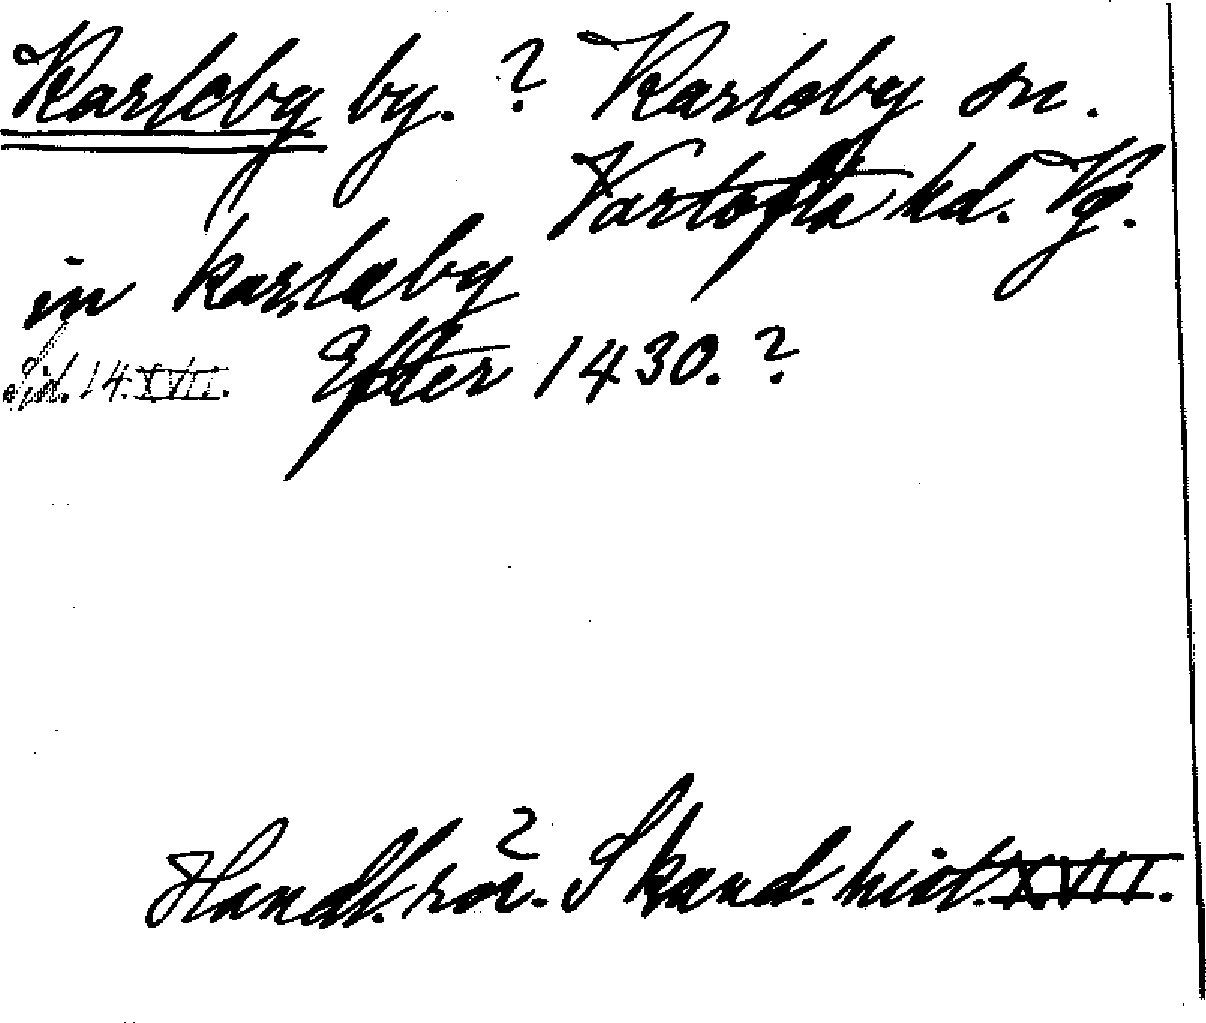 Karleby by. ? Karleby sn.
Vartofta hd. Vg.
in karlæby
Sid. 14. XVII. Efter 1430. ?
Handl. rör. Skand. hist. XVII.